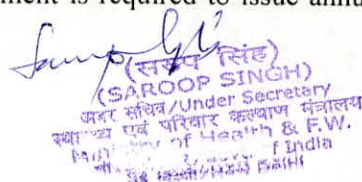 ment is required to issue annu
(सरूप सिंह)
(SAROOP SINGH)
अवर सचिव/Under Secretary
एवं परिवार कल्याण मंत्रालय
of Health & F.W.
f India